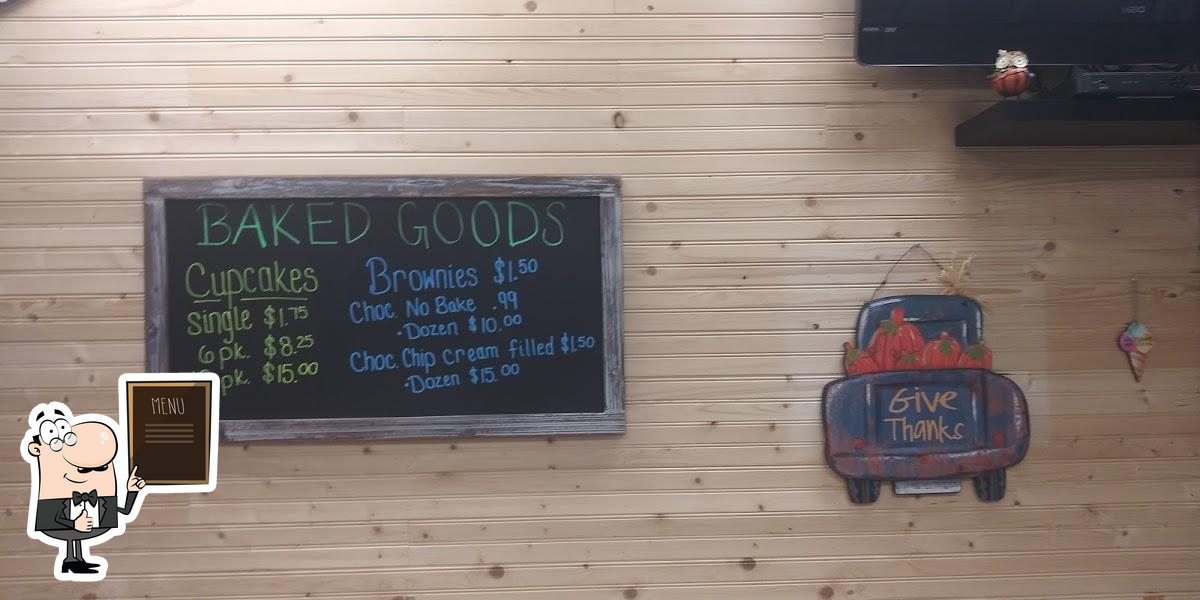 BAKED GOODS
Cupcakes
single $1.75
6 pk. $8.25
pk. $15.00
Brownies $1.50
Choc. No Bake .99
•Dozen $10.00
Choc. Chip cream filled $1.50
•Dozen $15.00
MENU
Give
Thanks
VIZIO